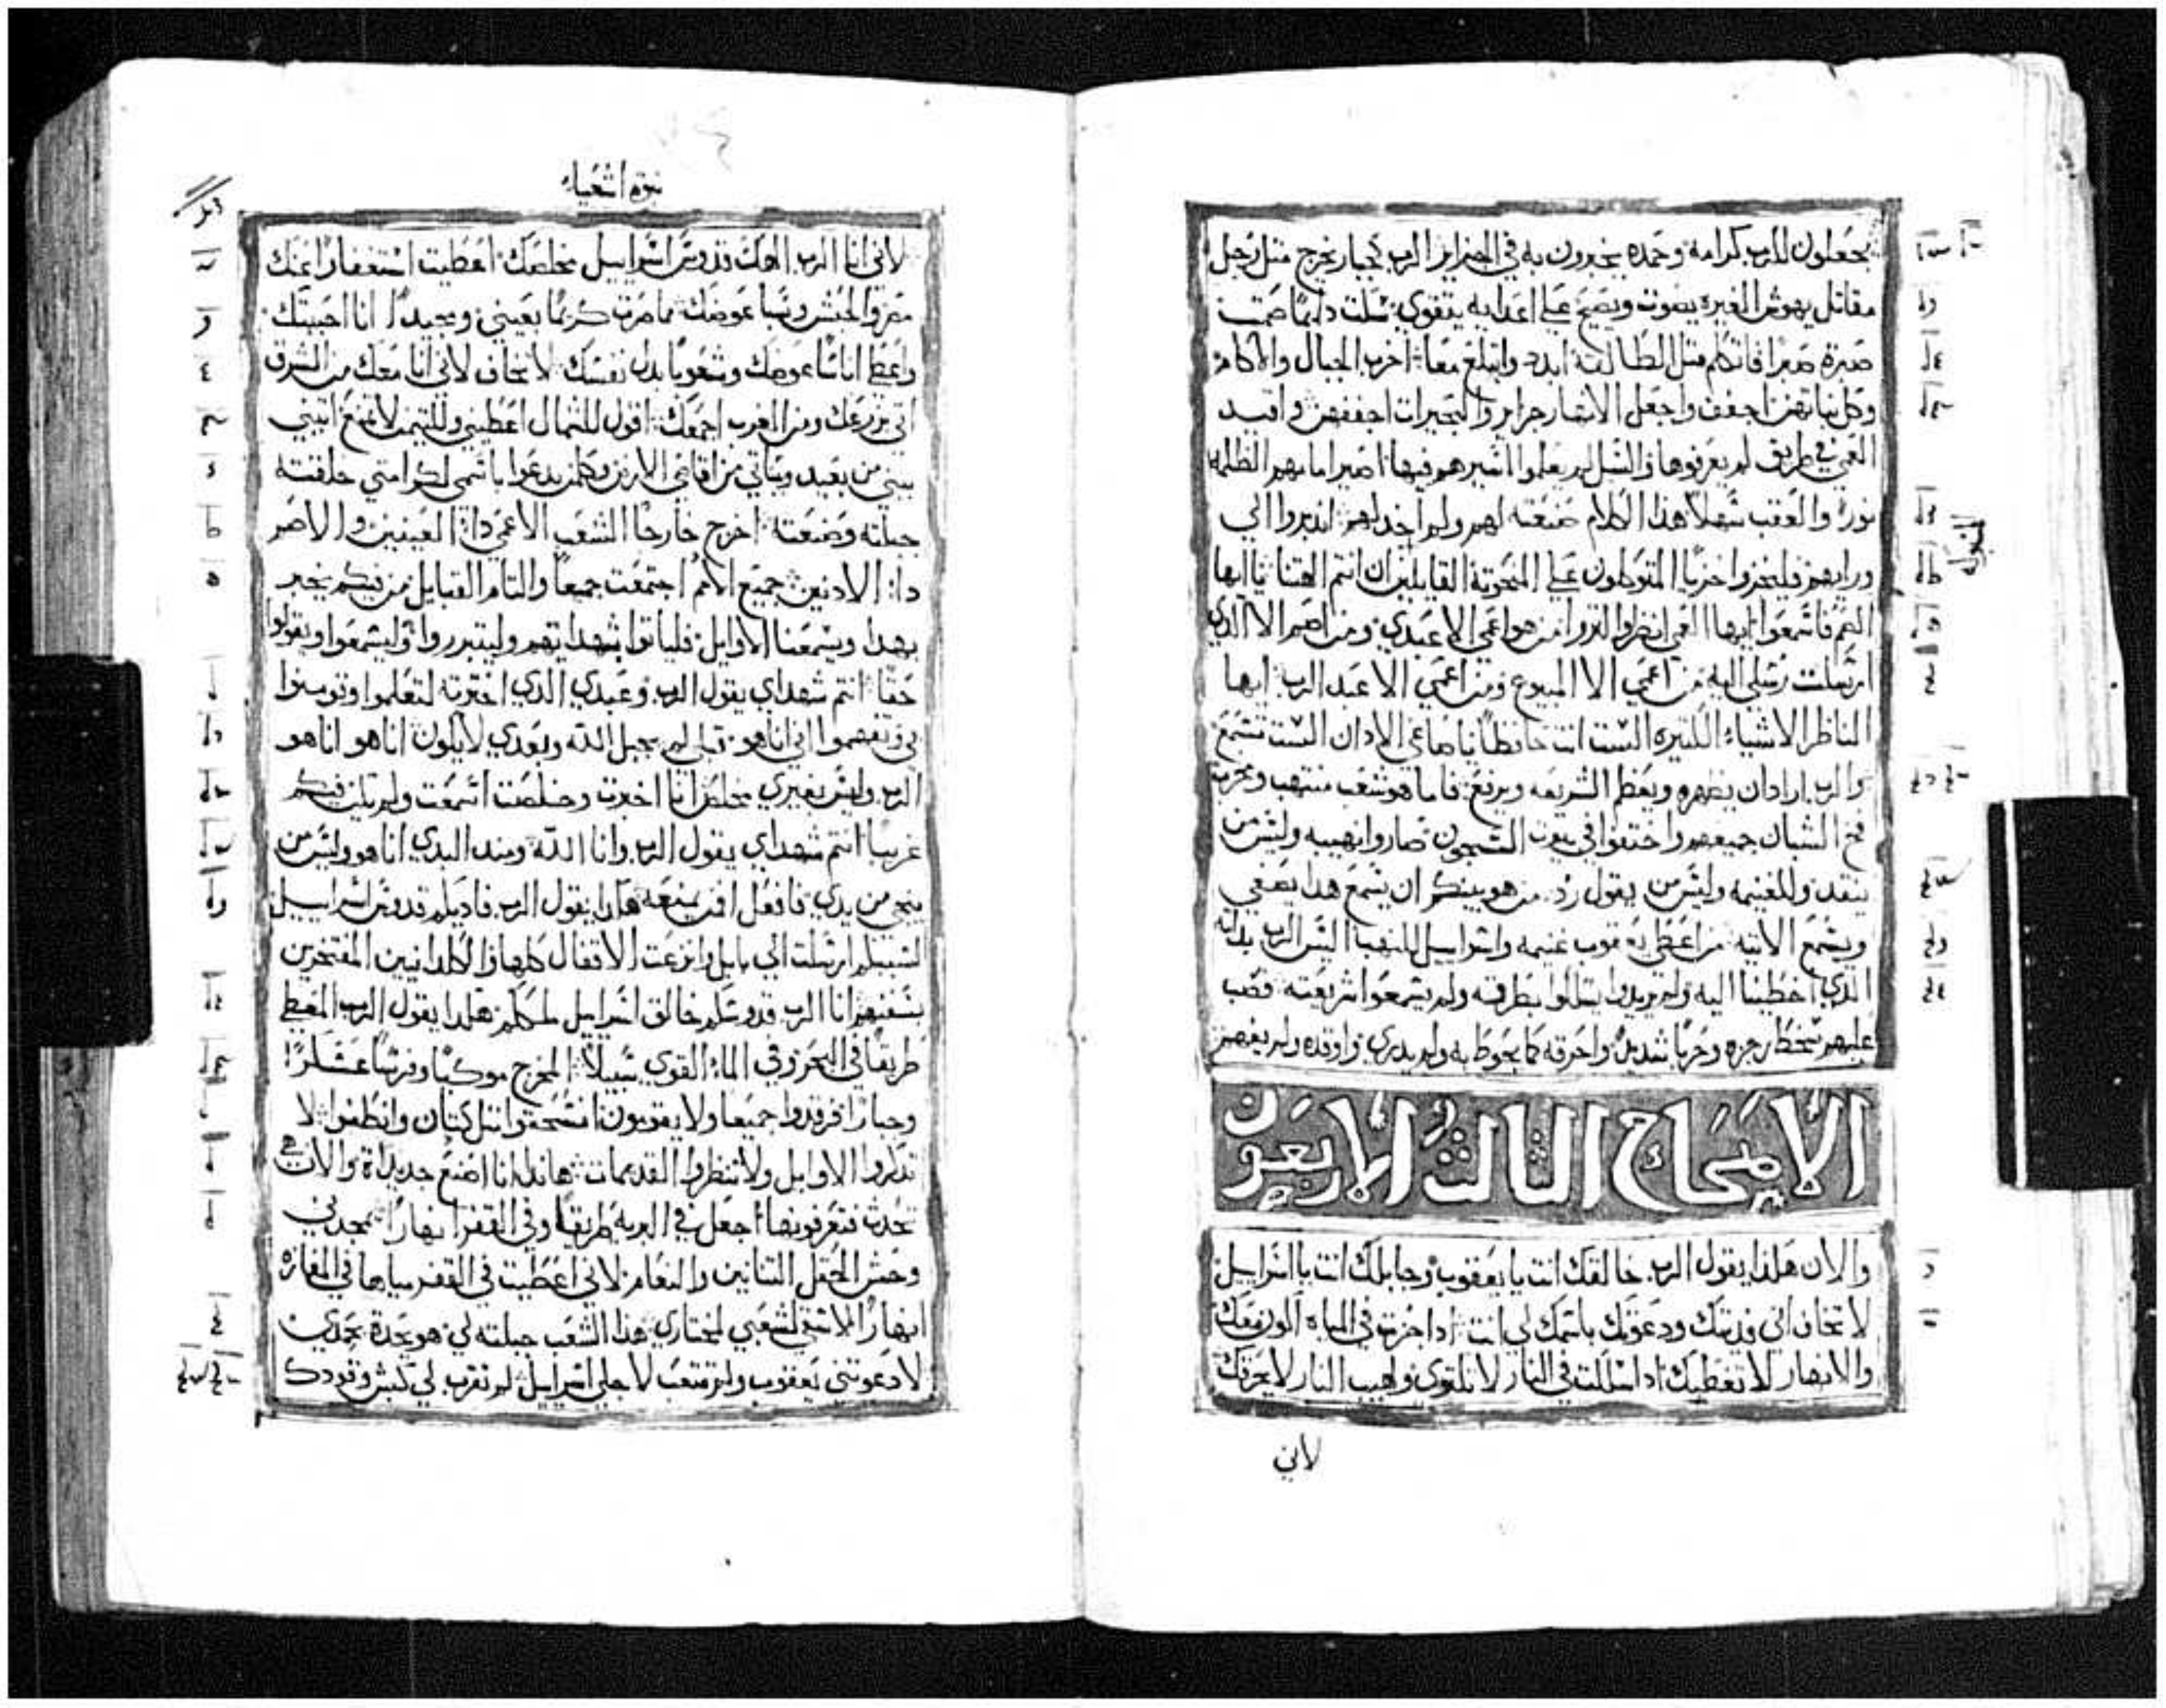 يجعلون للرب كرامة وحمده يخبرون به في الجزاير الرب كجبار يخرج مثل رجل
مقاتل يهوش الغيرة يصوت ويصيح على اعدايه يتقوي سكت دايما صمت
صبرت صبرا فاتكلم مثل الطالقة ابدد وابتلع معا اخرب الجبال والاكام
وكل نباتهن اجفف واجعل الانهار جزاير والبحيرات اجففهن واقيد
العمي في طريق لم يعرفوها والسبل لم يعلموا اسيرهم فيها اصير امامهم الظلمه
نورا والعقب سهلا هذا الكلام صنعته لهم ولم اخذلهم اندبروا الي
ورايهم فليخزوا خزيا المتوكلون على المنحوتة القايلين ان انتم الهتنا يا ايها
الصم فاسمعوا ايها العمي انظروا لتروا من هو اعمي الا عبدي ومن اصم الا الذي
ارسلت رسلي اليه من اعمي الا المبيوع ومن اعمي الا عبد الرب ايها
الناظر الاشياء الكتيره الست انت حافظا يا صاغي الادان الست تسمع
والرب اراد ان يطهره ويعظم الشريعه ويرفع فاما هو شعب منتهب وخرب
فخ الشبان جميعهم واختفوا في بيوت السجون صاروا نهيبه وليس من
ينقد وللغنيمه وليس من يقول رد من هو بينكم ان يسمع هذا يصغي
ويسمع الاتيه من اعطي يعقوب غنيمه واسراييل للنهب اليس الرب بداته
الذي اخطينا اليه ولم يريدوا يسلكوا بطرقه ولم يسمعوا شريعته فصب
عليهم سخط رجزه وحربا شديدا واحرقه كما يحوط به ولم يدري واوقده ولم يفهم
الاصحاح الثالث الاربعون
والان هكذا يقول الرب خالقك انت يا يعقوب وجابلك انت يا اسراييل
لا تخاف اني فديتك ودعوتك باسمك لي انت اذا اجزت في المياه اكون معك
والانهار لا تغطيك اذا سلكت في النار لا تلتوي ولهيب النار لا يحرقك
لاني
نبوة اشعياء
لاني انا الرب الهك قدوس اسراييل مخلصك اعطيت استغفارا عنك
مصر والحبش وسبا عوضك مما صرت كريما بعيني ومجيدا انا احببتك
واعطي اناسا عوضك وشعوبا بدل نفسك لا تخاف لاني انا معك من الشرق
اتي بزرعك ومن الغرب اجمعك اقول للشمال اعطيني وللتيمن لا تمنع ايتيني
بيني من بعيد وبناتي من اقاصي الارض وكلمن يدعوا باسمي لكرامتي خلقته
جبلته وصنعته اخرج خارجا الشعب الاعمي دا العينين والاصم
دا الادنين جميع الامم اجتمعت جميعا والتام القبايل من فيكم يخبر
بهدا ويسمعنا الاوايل فلياتوا بشهدايهم وليتبرروا وليسمعوا ويقولوا
حقا انتم شهداي يقول الرب وعبدي الذي اخترته لتعلموا وتومنوا
بي وتفهموا اني انا هو قبلي لم يجبل الله وبعدي لا يكون انا هو انا هو
الرب وليس بغيري مخلص انا اخبرت وخلصت اسمعت ولم يكن فيكم
غريبا انتم شهداي يقول الرب وانا الله ومند البدي انا هو وليس من
ينجي من يدي فافعل افمن يمنعه هكذا يقول الرب فاديكم قدوس اسراييل
لسببكم ارسلت الي بابل وانزعت الاقفال كلها والكلدانيين المفتخرين
بسفنهم انا الرب قدوسكم خالق اسراييل ملككم هكذا يقول الرب المعطي
طريقا في البحر وفي الماء القوي سبيلا المخرج موكبا وفرسا عسكرا
وجبارا فرقدوا جميعا ولا يقومون انسحقوا مثل كتان وانطفوا لا
تدكروا الاوايل ولا تنظروا القديمات هاندا انا اصنع جديدة والان
تحدث فتعرفونها اجعل في البريه طريقا وفي القفر انهارا يمجدني
وحش الحقل التنانين والنعام لاني اعطيت في القفر مياها في المغاره
انهارا لاسقي لشعبي لمختاري هذا الشعب جبلته لي هو يحدث بحمدي
لا دعوتني يعقوب ولم تتعب لاجلي اسراييل لم تقرب لي كبش وقودك